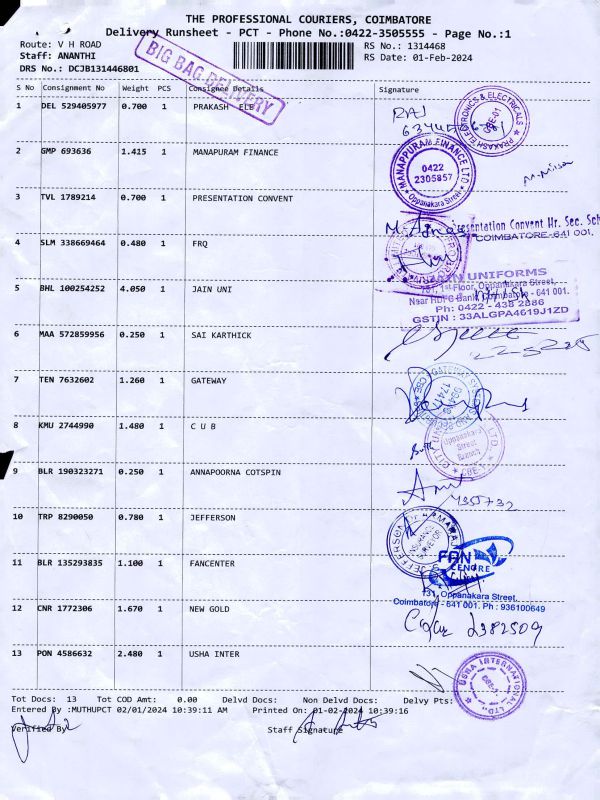 THE PROFESSIONAL COURIERS, COIMBATORE
Delivery Runsheet - PCT - Phone No.:0422-3505555 - Page No.:1
Route: V H ROAD
RS No.: 1314468
Staff: ANANTHI
RS Date: 01-Feb-2024
DRS No.: DCJB131446801
BIG BAG DELIVERY
S No Consignment No Weight PCS Consignee Details Signature
1 DEL 529405977 0.700 1 PRAKASH ELE
RAJ
PRAKASH ELECTRONICS & ELECTRICALS
2 GMP 693636 1.415 1 MANAPURAM FINANCE
MANAPPURAM FINANCE LTD
0422
2305857
Oppanakara Street
3 TVL 1789214 0.700 1 PRESENTATION CONVENT
Presentation Convent Hr. Sec. Sch
COIMBATORE-641 001.
4 SLM 338669464 0.480 1 FRQ
5 BHL 100254252 4.050 1 JAIN UNI
JAIN UNIFORMS
1st Floor, Oppanakara Street,
Near HDFC Bank, Coimbatore - 641 001.
Ph: 0422 - 438 2886
GSTIN : 33ALGPA4619J1ZD
6 MAA 572859956 0.250 1 SAI KARTHICK
7 TEN 7632602 1.260 1 GATEWAY
8 KMU 2744990 1.480 1 C U B
Oppanakara
Street
Branch
CBE
9 BLR 190323271 0.250 1 ANNAPOORNA COTSPIN
10 TRP 8290050 0.780 1 JEFFERSON
INSURANCE
SURVEYOR
11 BLR 135293835 1.100 1 FANCENTER
FAN
CENDRE
131, Oppanakara Street,
Coimbatore - 641 001. Ph : 936100649
12 CNR 1772306 1.670 1 NEW GOLD
2382509
13 PON 4586632 2.480 1 USHA INTER
USHA INTERNATIONAL LTD
CBE-1
Tot Docs: 13 Tot COD Amt: 0.00 Delvd Docs: Non Delvd Docs: Delvy Pts:
Entered By :MUTHUPCT 02/01/2024 10:39:11 AM Printed On: 01-02-2024 10:39:16
Verified By
Staff Signature